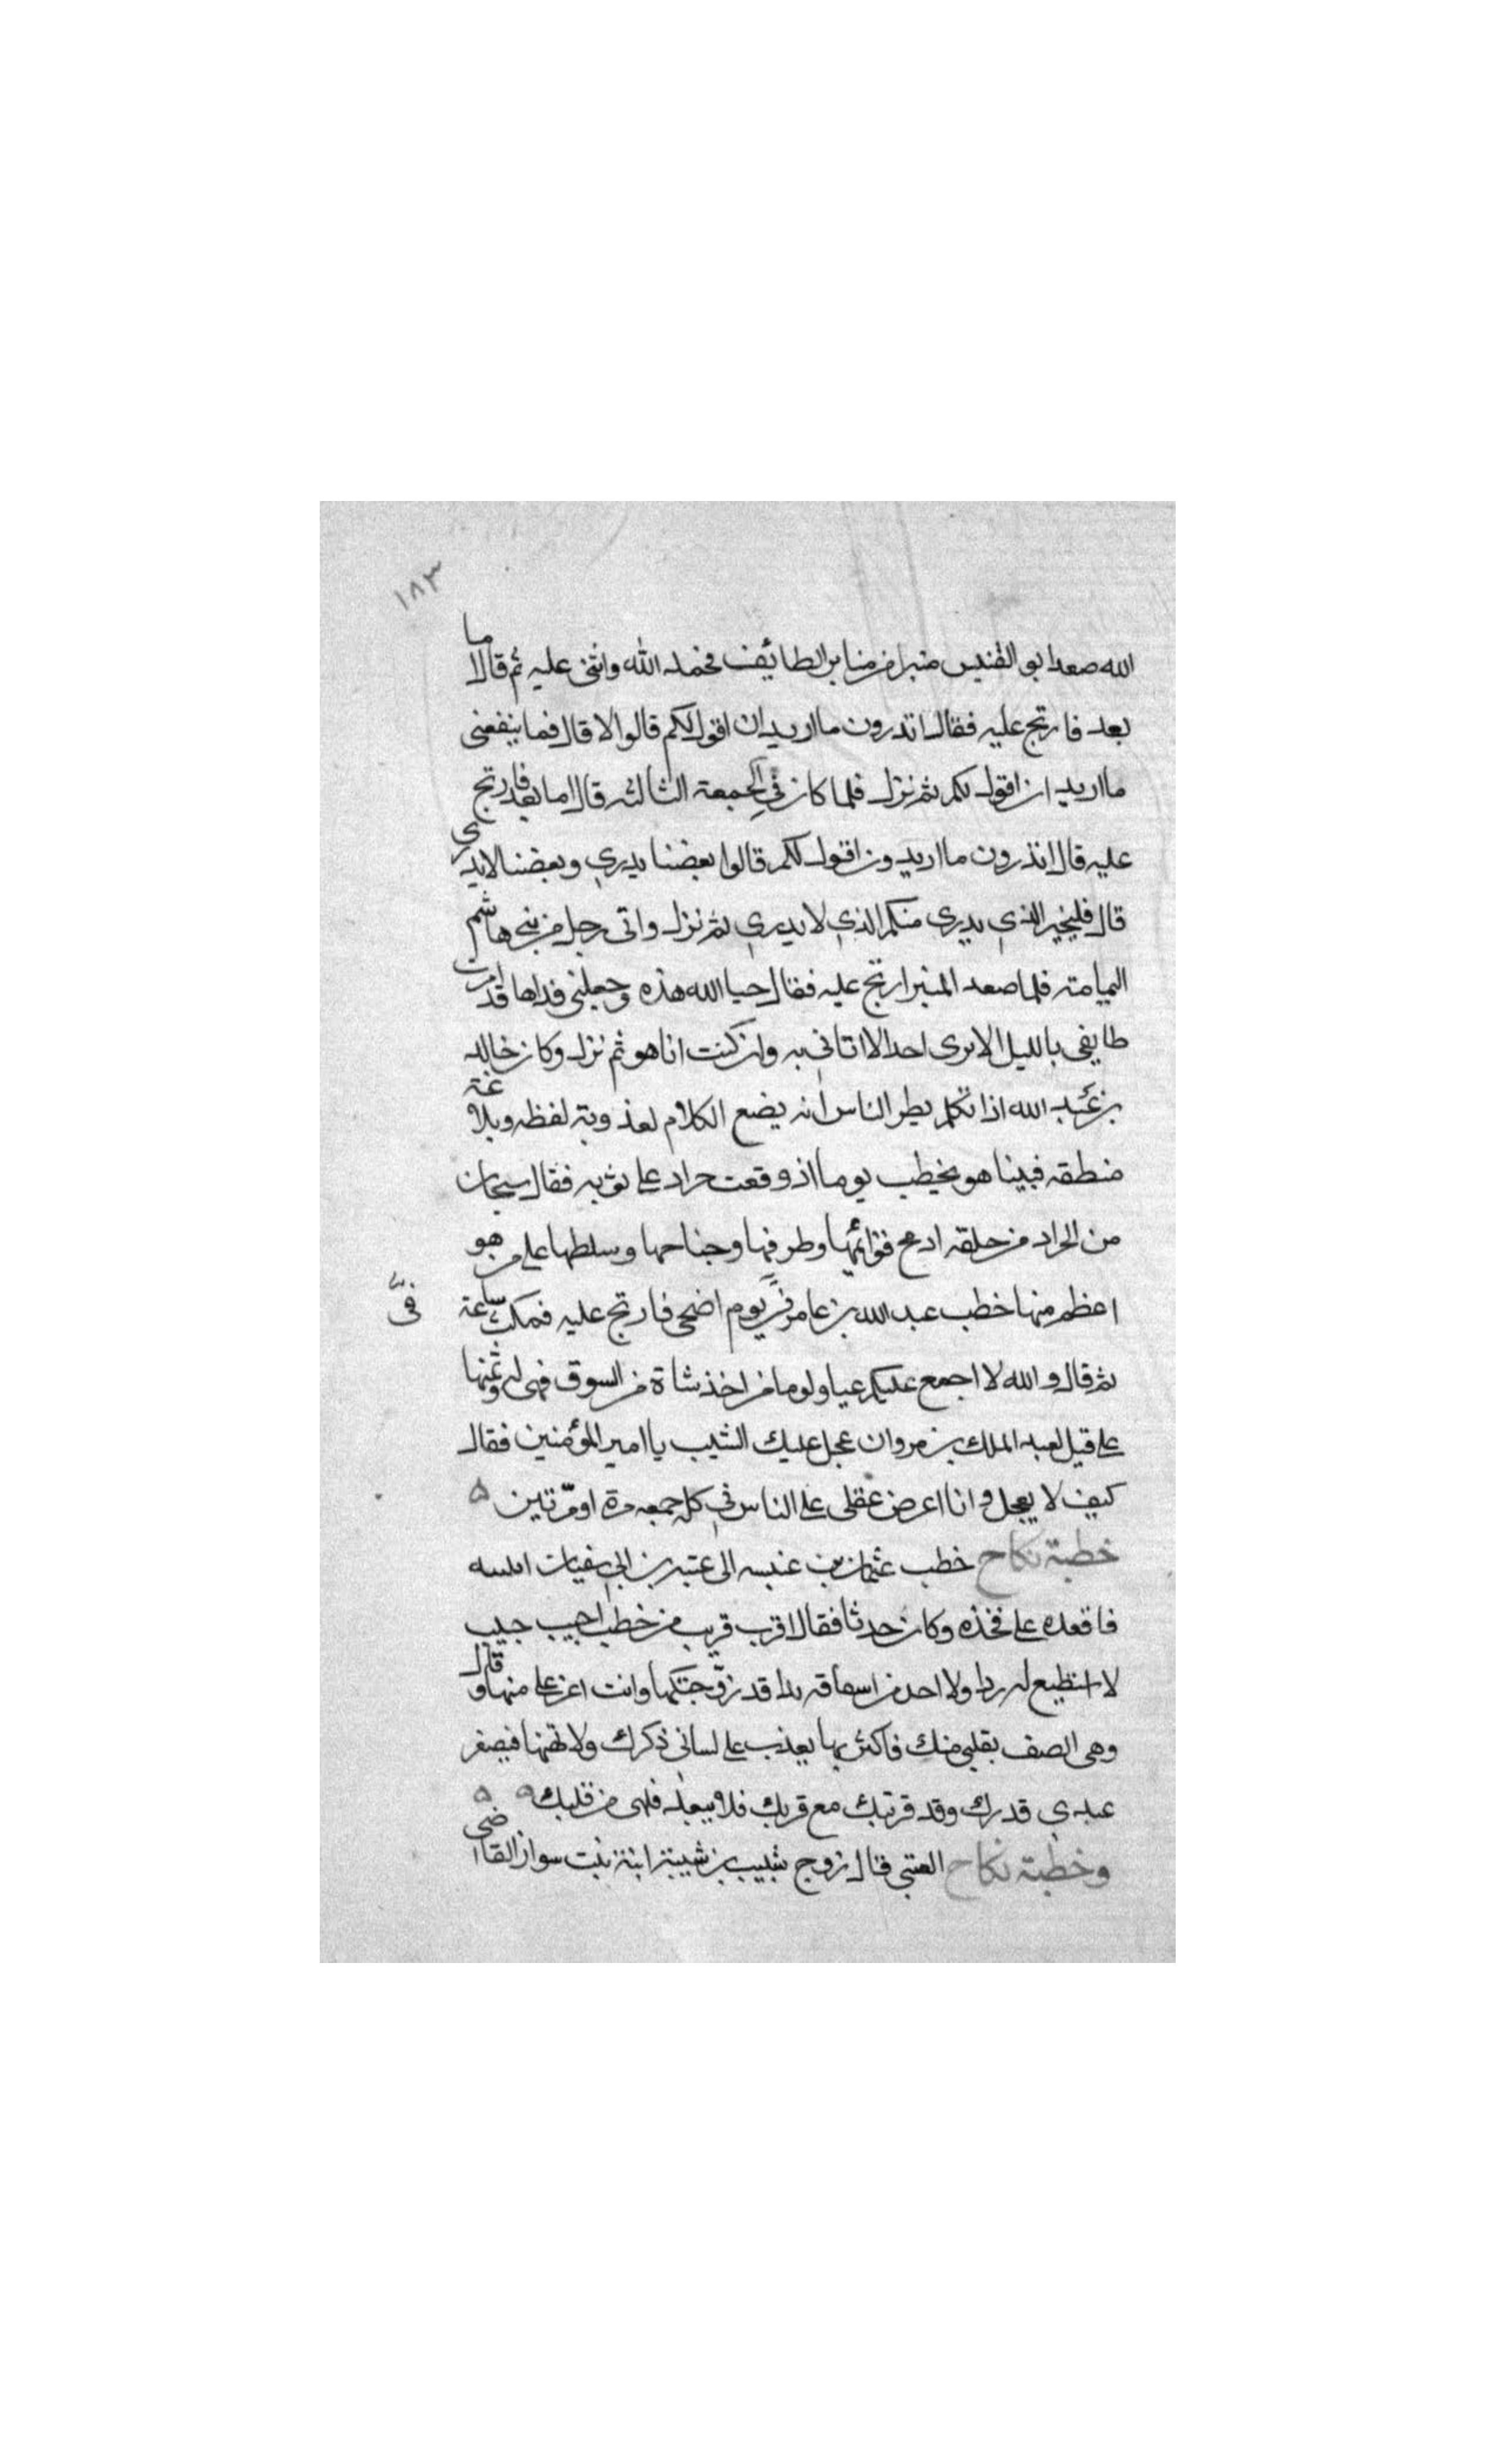 ١٨٣
الله صعد ابو العنبس منبرا من منابر الطائف فحمد الله واثنى عليه ثم قال اما
بعد فارتج عليه فقال اتدرون ما اريد ان اقول لكم قالوا لا قال فما ينفعنى
ما اريد ان اقول لكم ثم نزل فلما كان في الجمعة الثالثه قال اما بعد فارتج
عليه قال اتدرون ما اريد ون اقول لكم قالوا بعضنا يدري وبعضنا لا يدرى
قال فليخبر الذي يدرى منكم الذي لا يدري ثم نزل واتى رجل من بنى هاشم
اليمامة فلما صعد المنبر ارتج عليه فقال حيا الله هذه وجعلني فداها قد امرت
طايفى بالليل الا يرى احد الا اتانى به وان كنت انا هو ثم نزل وكان خالد
بن عبد الله اذا تكلم يظن الناس انه يضع الكلام لعذوبة لفظه وبلاغة
منطقه فبينا هو يخطب يوما اذ وقعت جراد على ثوبه فقال سبحان
من الجراد من خلقه ادمج قوائمها وطرفها وجناحها وسلطها على من هو
اعظم منها خطب عبد الله بن عامر في يوم اضحى فارتج عليه فمكث ساعة
ثم قال والله لا اجمع عليكم عيا ولوما من اخذ شاة من السوق فهى له وثمنها
على قيل لعبد الملك بن مروان عجل عليك الشيب يا امير المؤمنين فقال
كيف لا يعجل وانا اعرض عقلى على الناس في كل جمعه مرة او مرتين ٥
خطبة نكاح خطب عثمان بن عنبسه الى عتبه بن ابى سفيان ابنته
فاقعده على فخذه وكان حدثا فقال اقرب قريب من خطب احب حبيب
لا استطيع له ردا ولا احد من اسعافه بدا قد زوجتكها وانت اعز على منها وقال
وهى الصف بقلبى منك فاكثر بها يعذب على لسانى ذكرك ولا تهنها فيصغر
عبدي قدرك وقد قربتك مع قربك فلا يبعد فلهى من قلبك ٥ ٥
وخطبة نكاح العتبى قال زوج شبيب بن شيبة ابنة بنت سوار القاضى